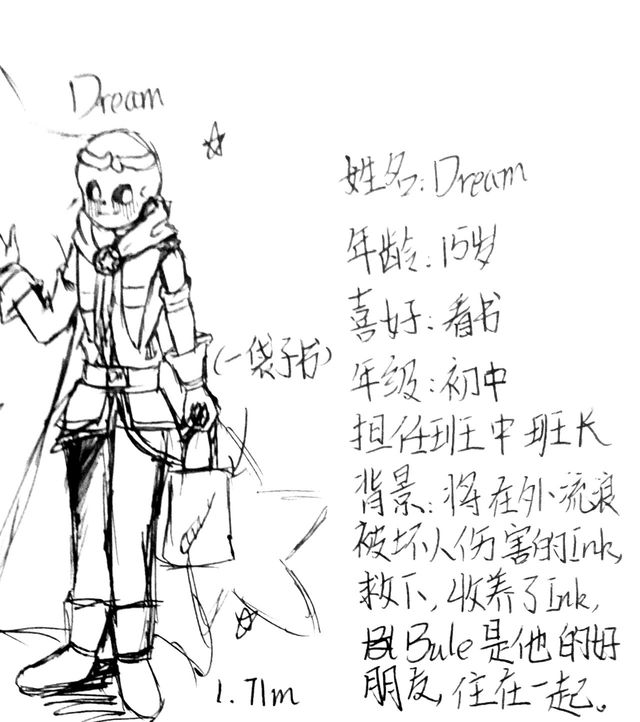 Dream
姓名:Dream
年龄:15岁
喜好:看书
(一袋子书)
年级:初中
担任班中班长
背景:将在外流浪
被坏人伤害的Ink,
救下,收养了Ink,
Bule是他的好
朋友,住在一起。
1.71m